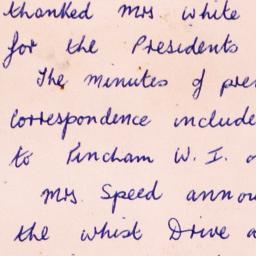 thanked Mrs White
for the Presidents
The minutes of pre
Correspondence include
to Fincham W. I.
Mrs. Speed annou
the whist Drive a